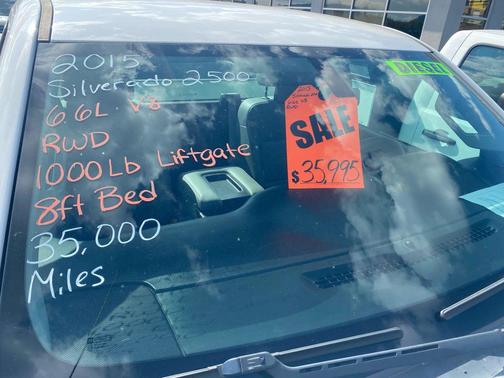 2015
Silverado 2500
6.6L V8
RWD
1000Lb Liftgate
8ft Bed
35,000
Miles
DIESEL
SALE
$35,995